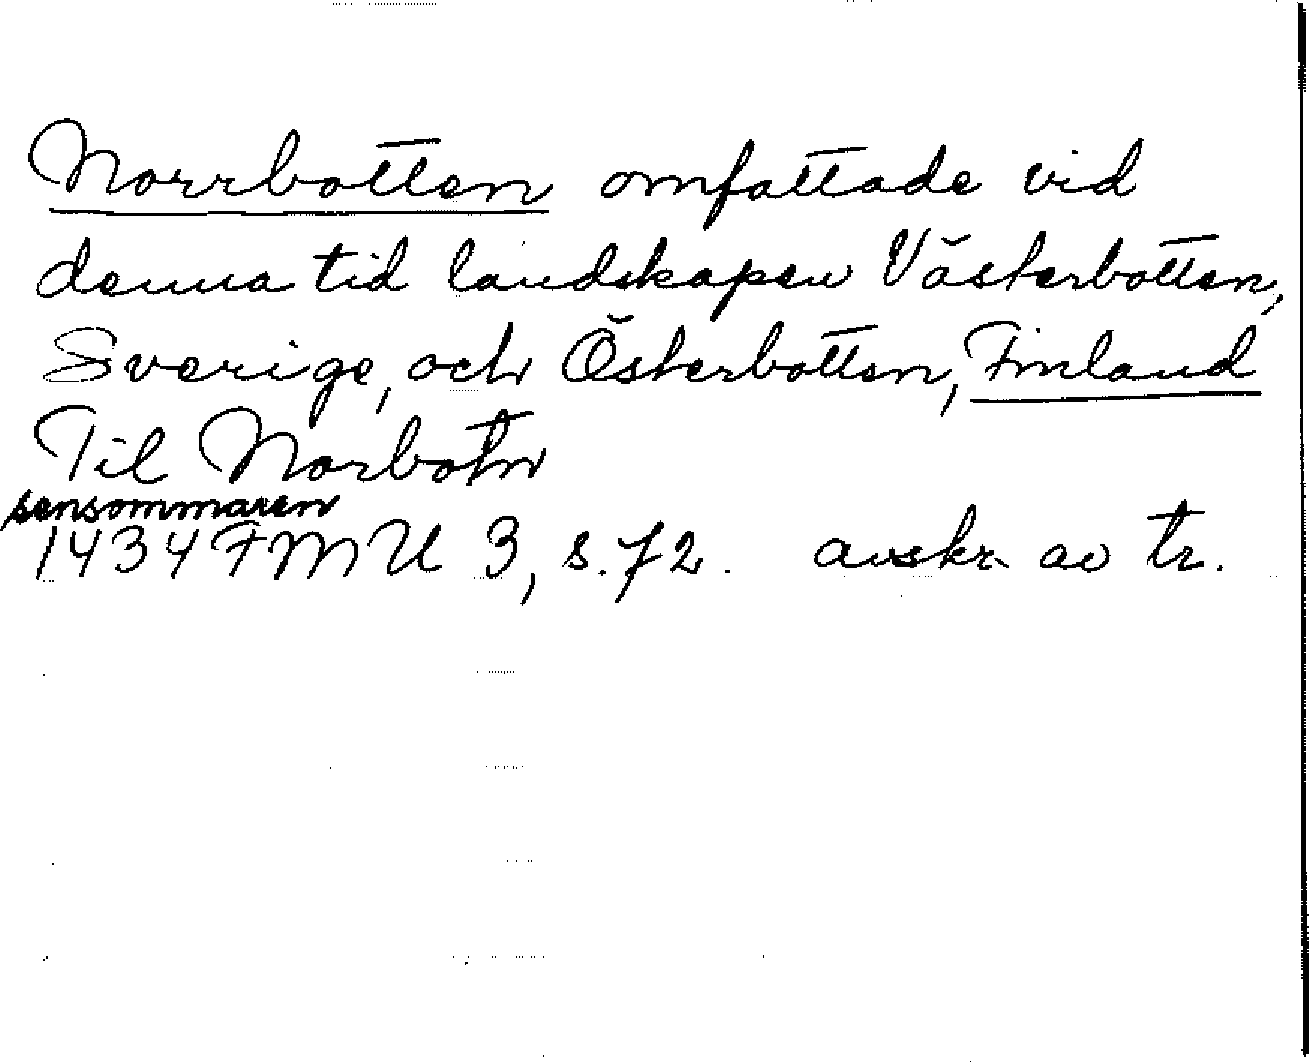 Norrbotten omfattade vid
denna tid landskapen Västerbotten,
Sverige, och Österbotten, Finland
Til Norbotn
sensommaren
1434 FMU 3, s. 72. avskr av tr.